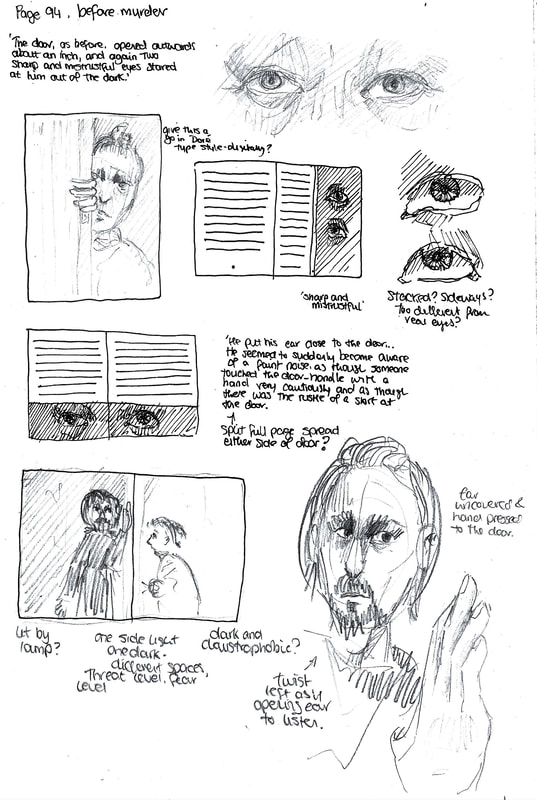 Page 94, before murder
'The door, as before, opened outwards
about an inch, and again two
sharp and mistrustful eyes stared
at him out of the dark.'
give this a
go in Doré
type style-digitally?
'sharp and
mistrustful'
Stacked? Sideways?
Too different from
real eyes?
'He put his ear close to the door...
He seemed to suddenly become aware
of a faint noise, as though someone
touched the door-handle with a
hand very cautiously and as though
there was the rustle of a skirt at
the door.
Split full page spread
either side of door?
Ear
uncovered &
hand pressed
to the door.
Lit by
lamp?
one side light
one dark -
different spaces,
Threat level, fear
level
dark and
claustrophobic?
twist
left as if
opening ear
to listen.